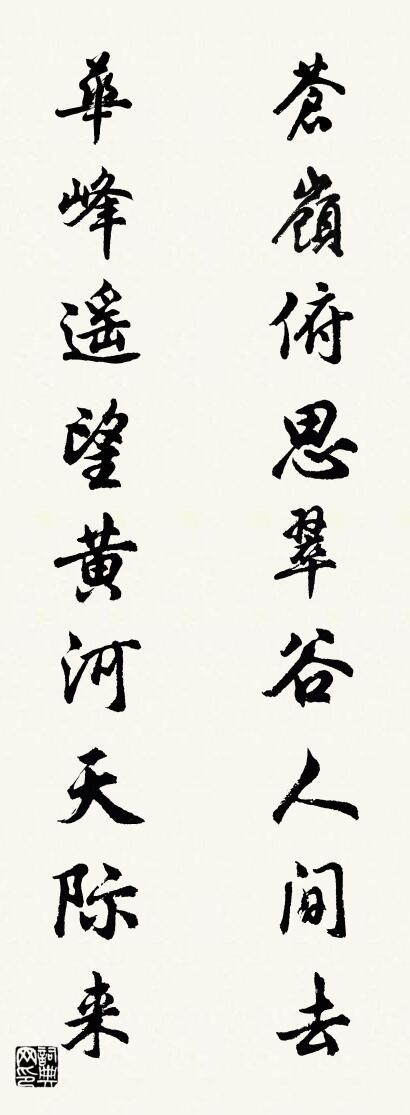 蒼嶺俯思翠谷人间去
華峰遥望黄河天际来
詞典网印